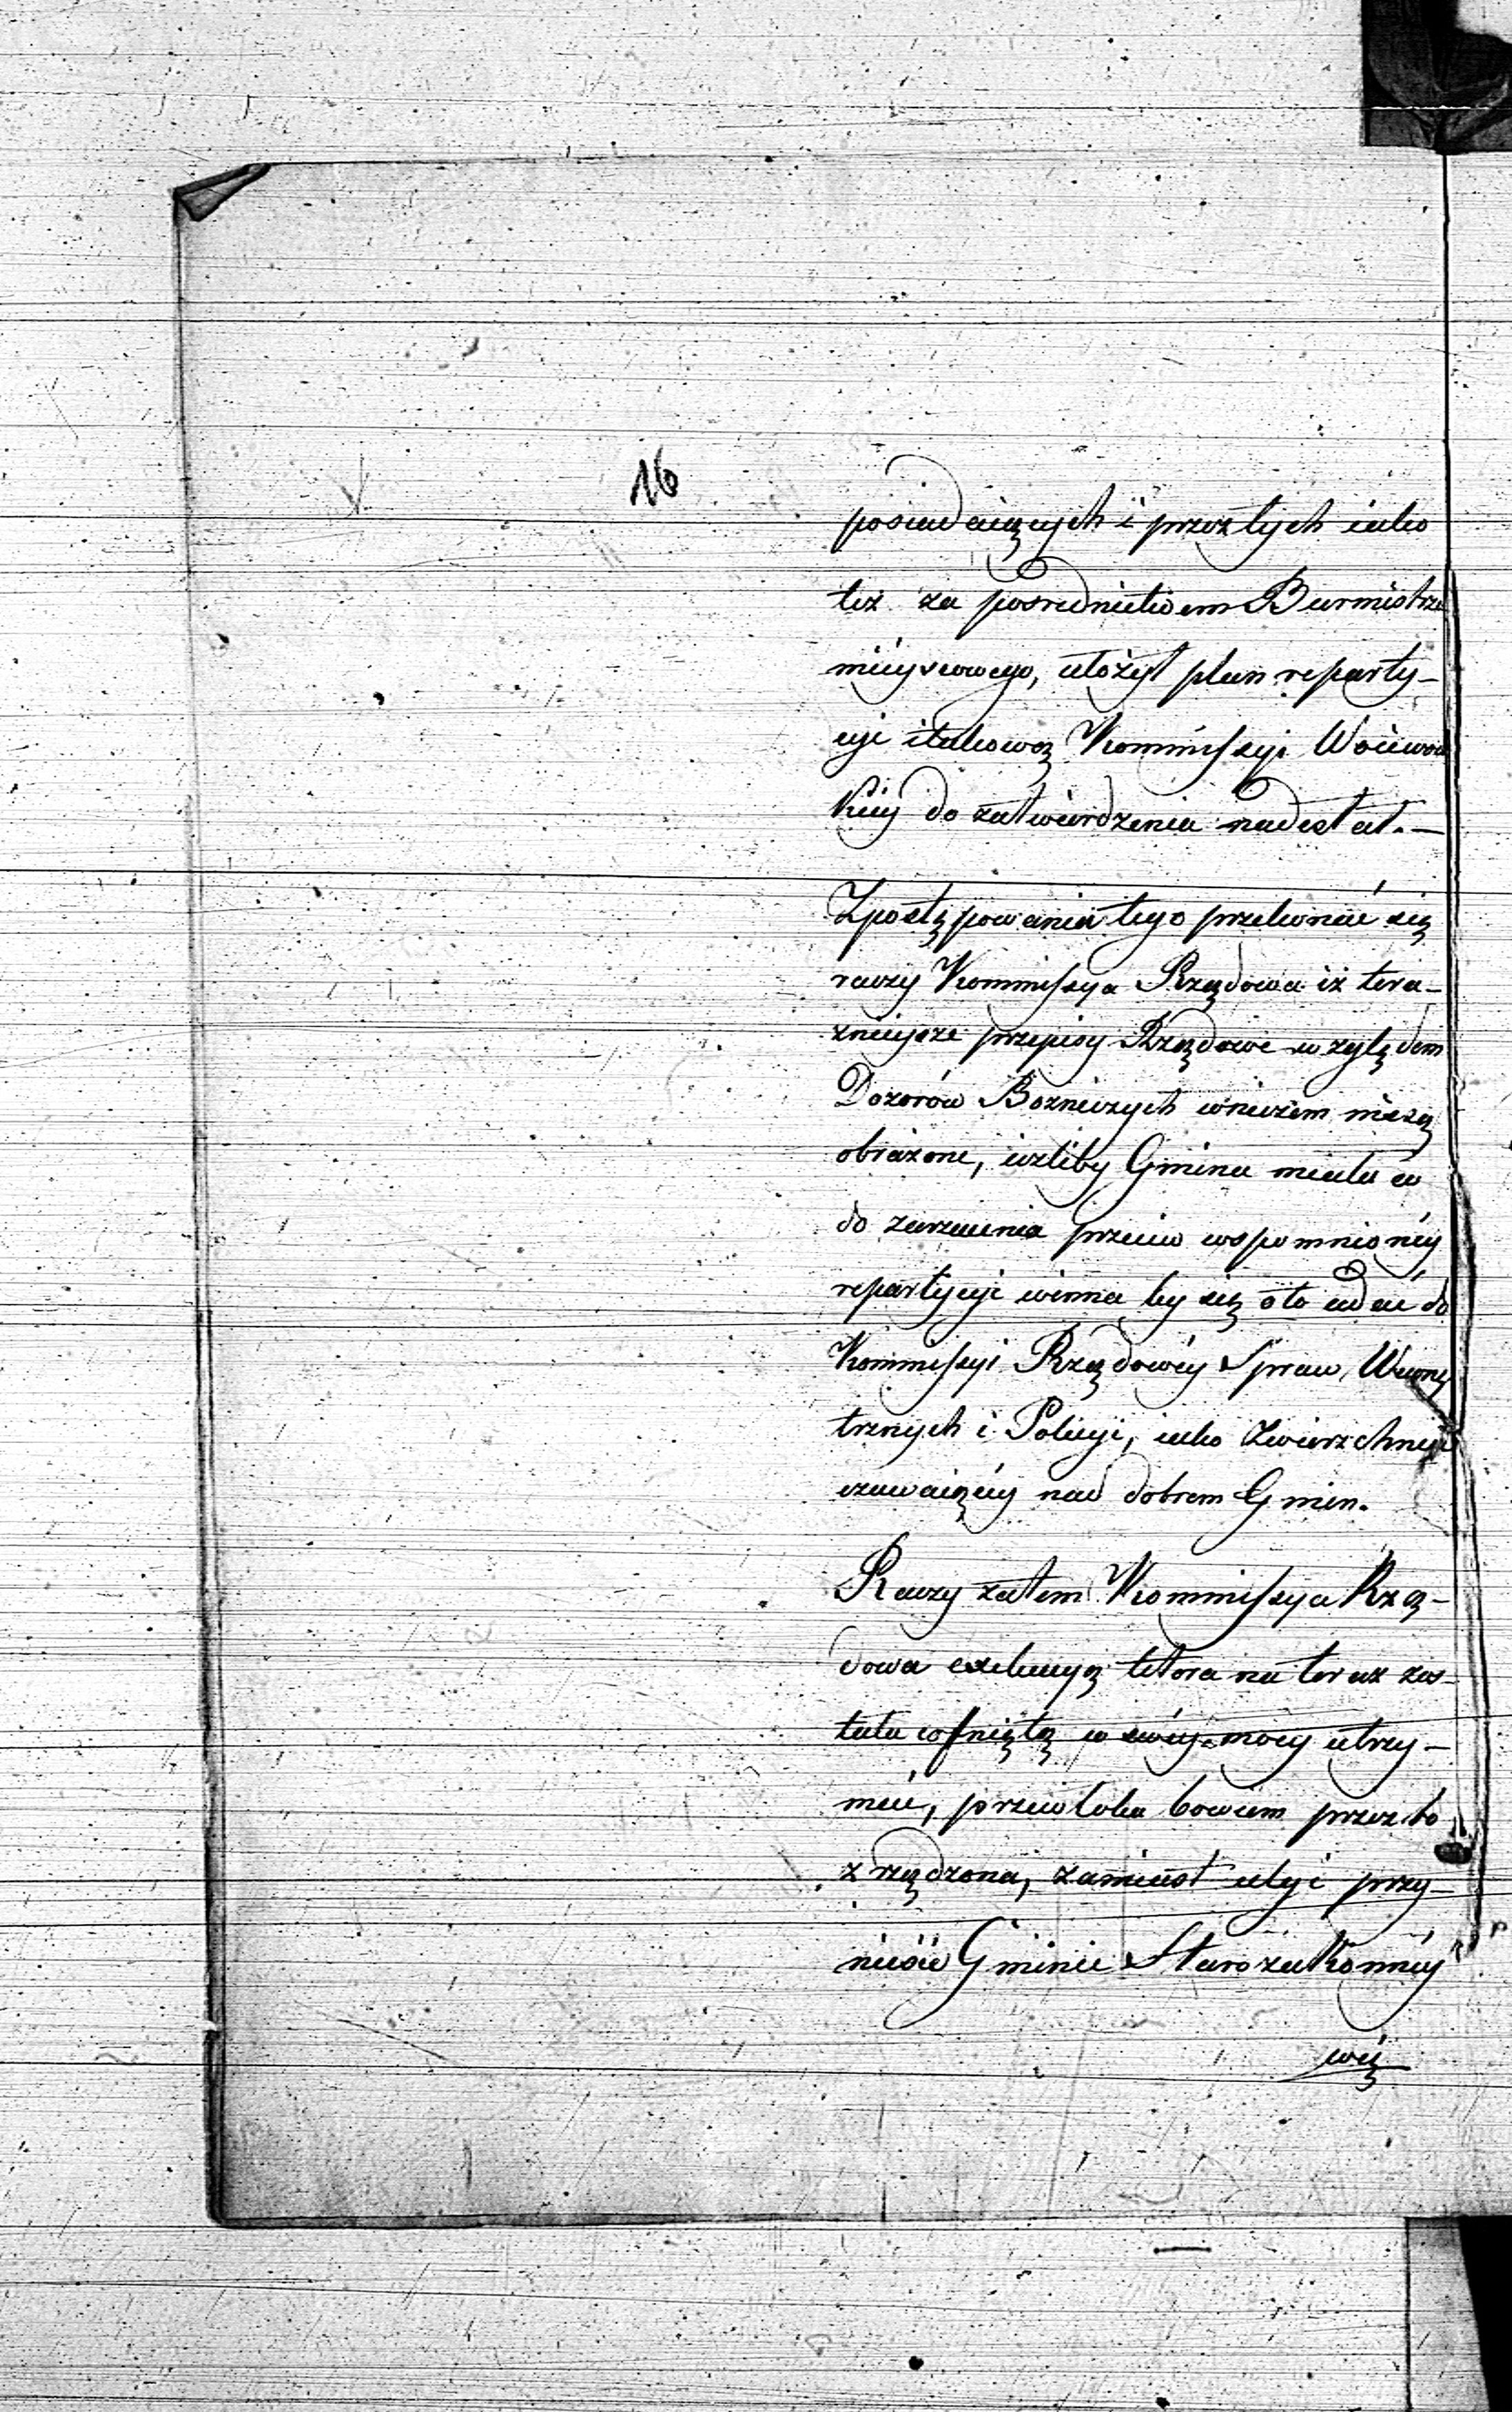 16
posiadaiących i przeztych iako
też za posrednictwem Burmistrza
mieyscowego, ułożył plan reparty-
cyi i takową Kommissyi Woiewodz
kiey do zatwierdzenia nadesłał.—
Z postępowania tego przekonać się
raczy Kommissya Rządowa iż tera-
znieysze przepisy Rządowe względem
Dozorów Bozniczych wniczem niesą
obrażone, ieżliby Gmina miała co
do zarzucenia przeciw wspomnioney
repartycyi winna by się oto udać do
Kommissyi Rządowéy Spraw Wewnę
trznych i Policyi, iako Zwierzchniey
czuwaiącéy nad dobrem Gmin.
Raczy zatem Kommissya Rzą-
dowa exekucyą która na teraz zos-
tała cofniętą w swéy mocy utrzy-
mać, przewłoka bowiem przez to
zrządzona, zamiast ulgi przy-
nieśie Gminie Starozakonnéy